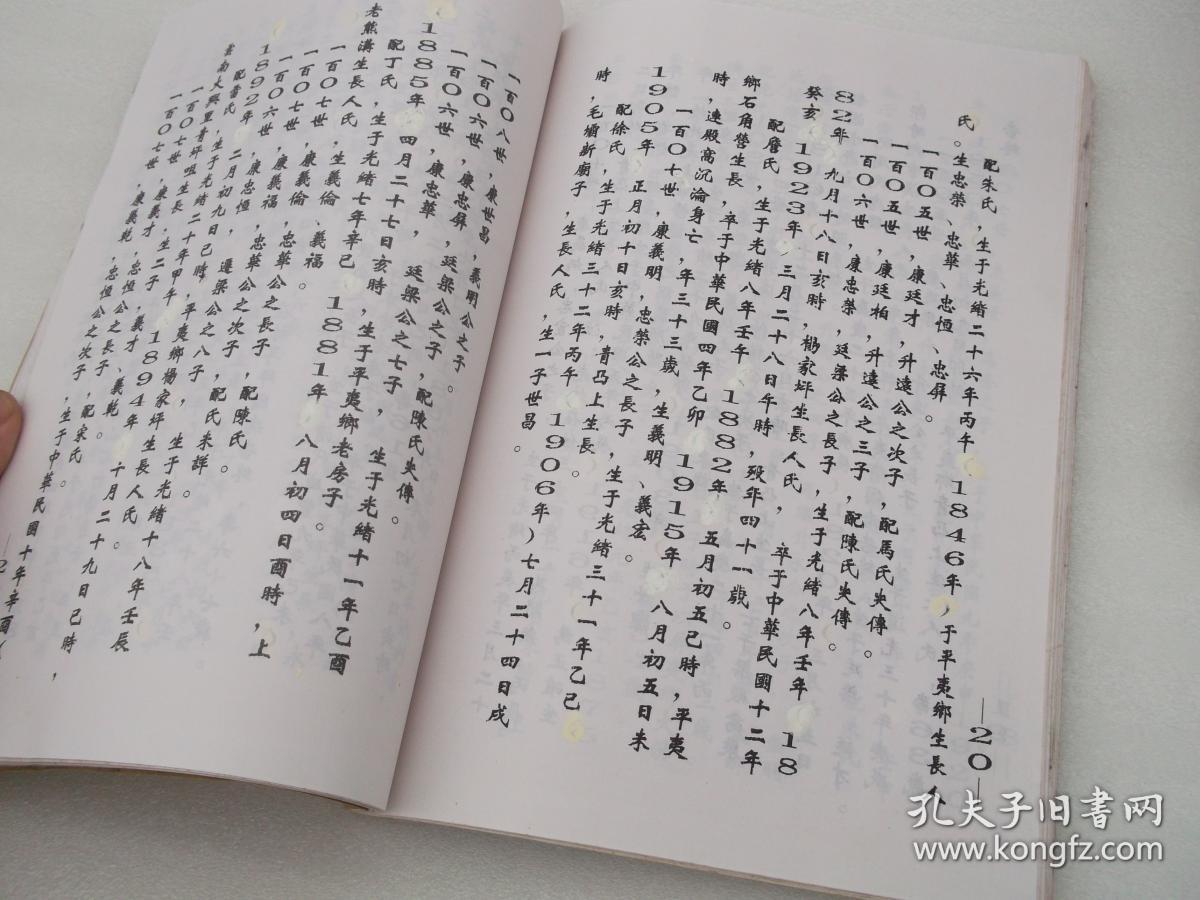 —20—
配朱氏,生于光緒二十六年丙午(1846年)于平夷鄉生長人
氏。生忠榮、忠華、忠恒、忠屏。
一百0五世,康廷才,升遠公之次子,配馬氏失傳
一百0五世,康廷柏,升遠公之三子,配陳氏失傳。
一百0六世,康忠榮,廷梁公之長子,生于光緒八年壬年 18
82年 九月十八日亥時,楊家坪生長人氏, 卒于中華民國十二年
癸亥(1923年)三月二十八日午時,殁年四十一歲。
配詹氏,生于光緒八年壬午(1882年 五月初五巳時,平夷
鄉石角營生長,卒于中華民國四年乙卯(1915年 八月初五日未
時,連殿窩沉淪身亡,年三十三歲,生義明、義宏。
一百0七世,康義明,忠榮公之長子,生于光緒三十一年乙巳
1905年 正月初十日亥時,青凸上生長。
配徐氏,生于光緒三十二年丙午(1906年)七月二十四日戌
時,毛壩新廟子,生長人氏,生一子世昌。
一百0八世,康世昌,義明公之子。
一百0六世,康忠屏,廷梁公之子,配陳氏失傳。
一百0六世,康忠華,廷梁公之七子,生于光緒十一年乙酉
1885年 四月二十七日亥時,生于平夷鄉老房子。
配丁氏,生于光緒七年辛巳(1881年 八月初四日酉時,上
老熊溝生長人氏
一百0七世,生義倫、義福。
一百0七世,康義倫,忠華公之長子
一百0七世,康義福,忠華公之次子,配陳氏。
一百0六世,康忠恒,遷梁公之八子,生于光緒十八年壬辰
1892年 二月初九日巳時,平夷鄉楊家坪生長人氏。
配雷氏,生于光緒二十年甲午(1894年 十月二十九日巳時,
雲南大興里青坪咀生長,生二子,義才、義乾。
一百0七世,康義才,忠恒公之長子,配宋氏。
一百0七世,康義乾,忠恒公之次子,生于中華民國十年辛酉(
—2
孔夫子旧书网
www.kongfz.com